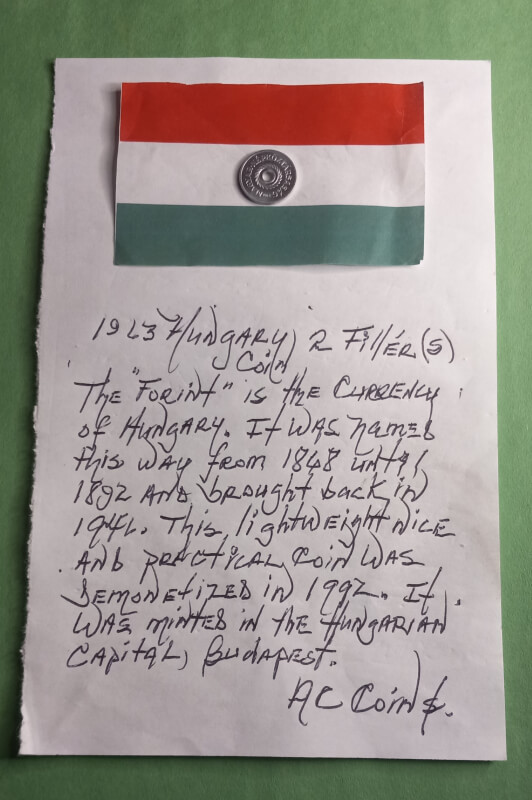 MAGYAR NÉPKÖZTÁRSASÁG
1963 Hungary, 2 Fillér(s)
Coin
The "Forint" is the Currency
of Hungary. It was named
this way from 1848 until
1892 and brought back in
1946. This lightweight nice
and practical coin was
demonetized in 1992. It
was minted in the Hungarian
Capital, Budapest.
AC Coin$.